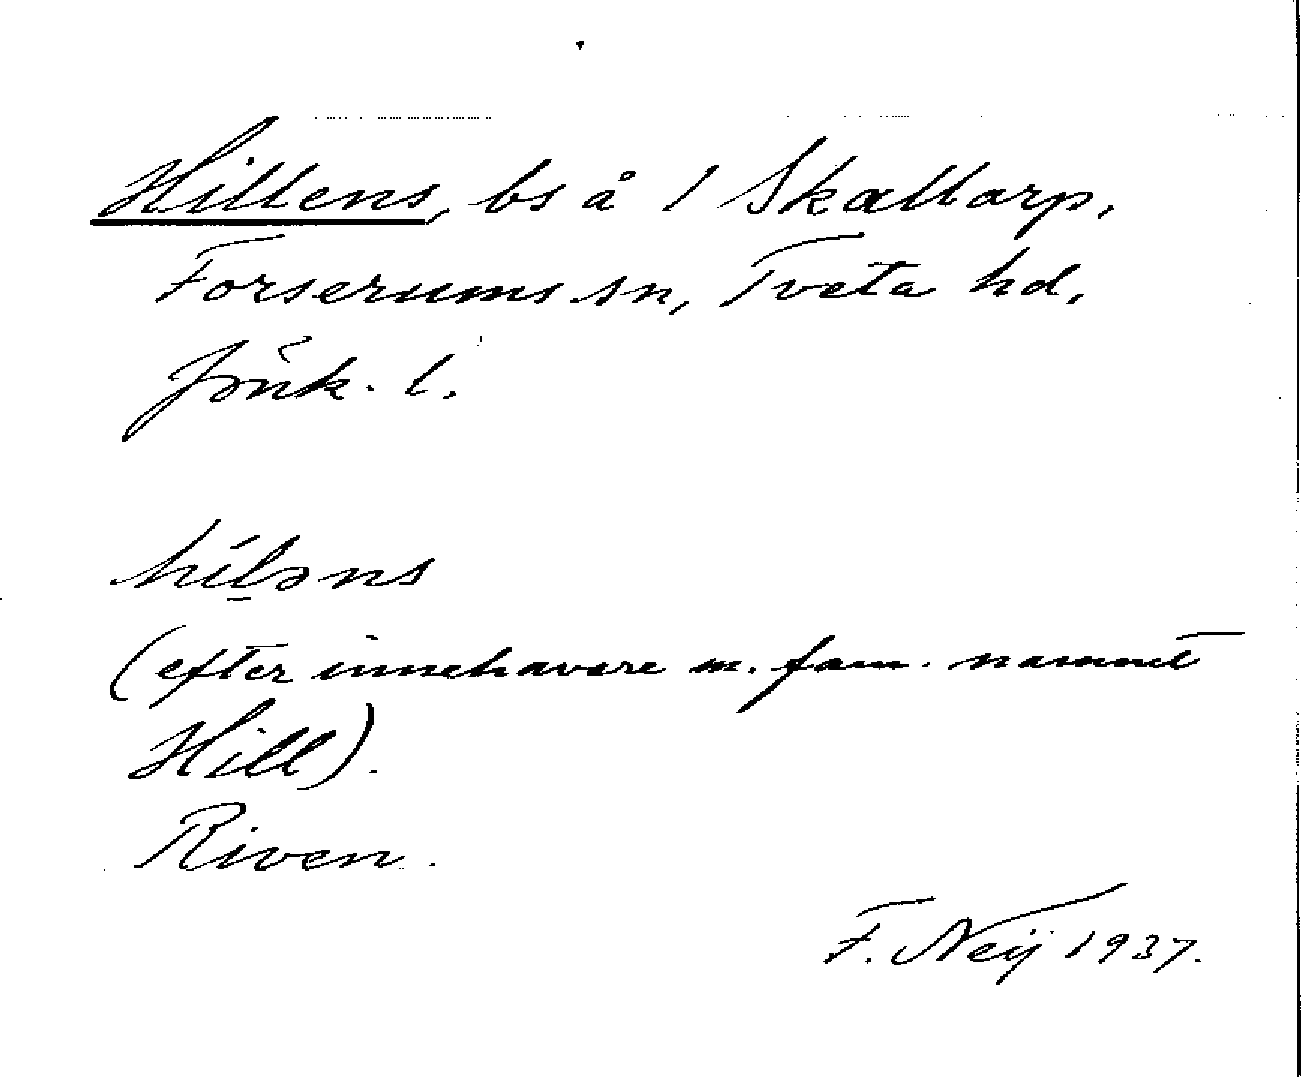 Hillens, bs å 1 Skallarp,
Forserums sn, Tveta hd,
Jönk. l.
híl̠əns
(efter innehavare m. fam. namnet
Hill).
Riven.
F. Neij 1937.